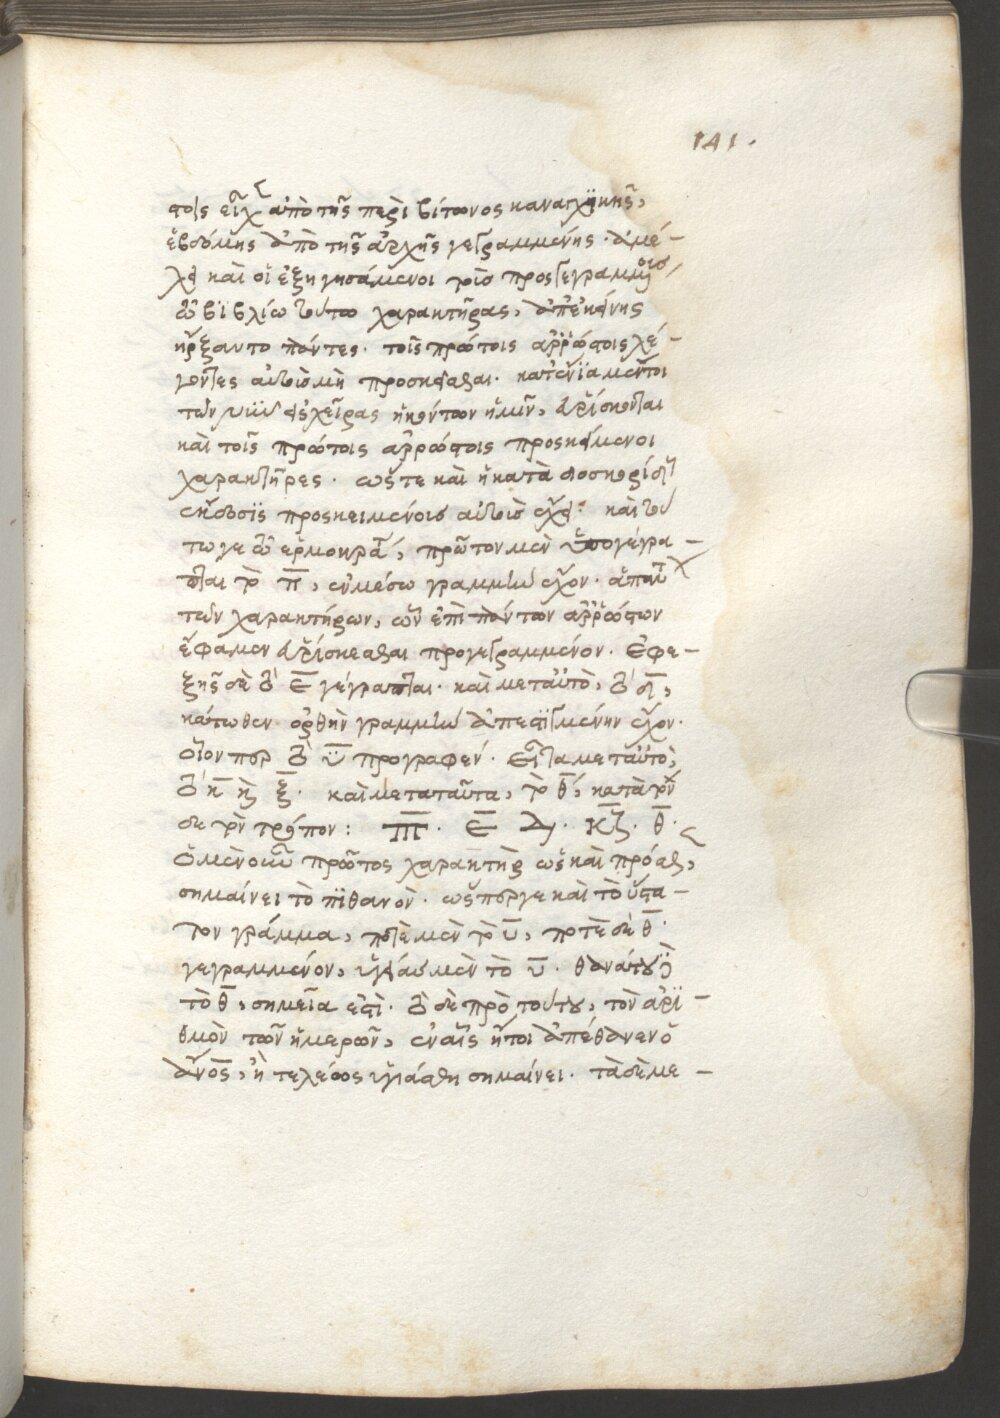 141.
τοις εἶχ ἀπὸ τῆς περὶ βίτωνος καταρχὴν κινης,
ἑβδόμης ἀπὸ τῆς ἀρχῆς γεγραμμένης. ἀμέ-
λει καὶ οἱ ἐξηγησάμενοι τοὺς προσγεγραμμένους
τῷ βιβλίῳ τούτῳ χαρακτῆρας, ἀπ' ἐκείνης
ἤρξαντο πάντες. τοῖς πρώτοις ἀρρώστοις λέ-
γοντες αὐτοὺς μὴ προσκεῖσθαι. κατ' ἔνια μέντοι
τῶν νῦν εἰς χεῖρας ἡκόντων ἡμῖν, εὑρίσκονται
καὶ τοῖς πρώτοις ἀρρώστοις προσκείμενοι
χαρακτῆρες. ὥστε καὶ ἡ κατὰ διοσκορίδην
ἔκδοσις προσκειμένους αὐτοὺς ἔχει. καὶ τού
τω γε τῷ ἑρμοκρά, πρῶτον μὲν ὑπογέγρα-
πται τὸ π̅, ἐν μέσῳ γραμμὴν ἔχον. ἁπάντων
τῶν χαρακτήρων, ὧν ἐπὶ πάντων ἀρρώστων
ἔφαμεν εὑρίσκεσθαι προγεγραμμένον. ἐφε-
ξῆς δὲ τὸ ε̅ γέγραπται. καὶ μετ' αὐτὸ, τὸ δ̅,
κάτωθεν ὀρθὴν γραμμὴν ἀπεστιγμένην ἔχον.
οἷον περ τὸ υ̅ προγραφέν. εἶτα μετ' αὐτὸ,
τὸ κ̅ καὶ ζ̅. καὶ μετὰ ταῦτα, τὸ θ̅, κατὰ τόν
δε τὸν τρόπον: π̅. ε̅ δ. κ̅ζ̅. θ̅.
ὁ μὲν οὖν πρῶτος χαρακτὴρ ὡς καὶ πρόσθεν,
σημαίνει τὸ πιθανόν. ὥσπερ γε καὶ τὸ ὕστα-
τον γράμμα, ποτὲ μὲν τὸ υ̅, ποτὲ δὲ θ̅.
γεγραμμένον, ὑγείας μὲν τὸ υ̅. θανάτου δὲ
τὸ θ̅, σημεῖα ἐστὶ. τὸ δὲ πρὸ τούτου, τὸν ἀρι-
θμὸν τῶν ἡμερῶν, ἐν αἷς ἤτοι ἀπέθανεν ὁ
ἄνος, ἢ τελέως ὑγιάσθη σημαίνει. τὰ δὲ με-